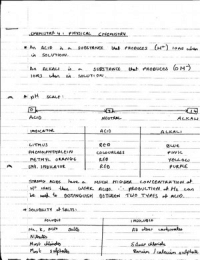 CHEMISTRY 4 : PHYSICAL CHEMISTRY
* AN ACID IS A SUBSTANCE that PRODUCES (H⁺) IONS when
IN SOLUTION.
AN ALKALI IS A SUBSTANCE that PRODUCES (OH⁻)
IONS WHEN IN SOLUTION.
* pH SCALE:
0 7 14
ACID NEUTRAL ALKALI
INDICATOR ACID ALKALI
LITMUS RED BLUE
PHENOLPHTHALEIN COLOURLESS PINK
METHYL ORANGE RED YELLOW
UNI. INDICATOR RED PURPLE
STRONG ACIDS HAVE a MUCH HIGHER CONCENTRATION OF
H⁺ IONS than WEAK ACIDS. PRODUCTION of H₂ can
be used to DISTINGUISH BETWEEN TWO TYPES of ACID.
* SOLUBILITY of SALTS:
SOLUBLE INSOLUBLE
Na, K, NH₄⁺ salts All other carbonates
Nitrates
Most chlorides Silver chloride
Most sulphates Barium / calcium sulphate